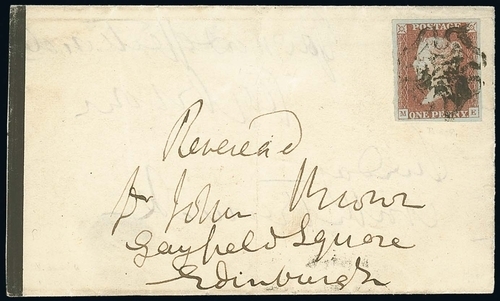 POSTAGE
M ONE PENNY E
Reverend
Dr John Brown
Gayfield Square
Edinburgh